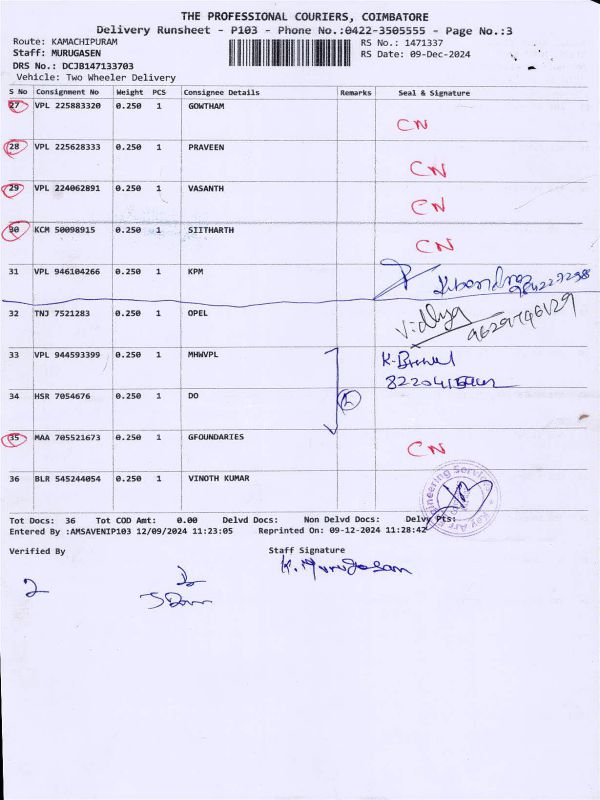 THE PROFESSIONAL COURIERS, COIMBATORE
Delivery Runsheet - P103 - Phone No.:0422-3505555 - Page No.:3
Route: KAMACHIPURAM RS No.: 1471337
Staff: MURUGASEN RS Date: 09-Dec-2024
DRS No.: DCJB147133703
Vehicle: Two Wheeler Delivery
S No Consignment No Weight PCS Consignee Details Remarks Seal & Signature
27 VPL 225883320 0.250 1 GOWTHAM
CN
28 VPL 225628333 0.250 1 PRAVEEN
CN
29 VPL 224062891 0.250 1 VASANTH
CN
30 KCM 50098915 0.250 1 SIITHARTH
CN
31 VPL 946104266 0.250 1 KPM
32 TNJ 7521283 0.250 1 OPEL
Vidhya
33 VPL 944593399 0.250 1 MHWVPL
34 HSR 7054676 0.250 1 DO
35 MAA 705521673 0.250 1 GFOUNDARIES
CN
36 BLR 545244054 0.250 1 VINOTH KUMAR
Tot Docs: 36 Tot COD Amt: 0.00 Delvd Docs: Non Delvd Docs: Delvy Pts:
Entered By :AMSAVENIP103 12/09/2024 11:23:05 Reprinted On: 09-12-2024 11:28:42
Verified By Staff Signature
K. Murugesan
2